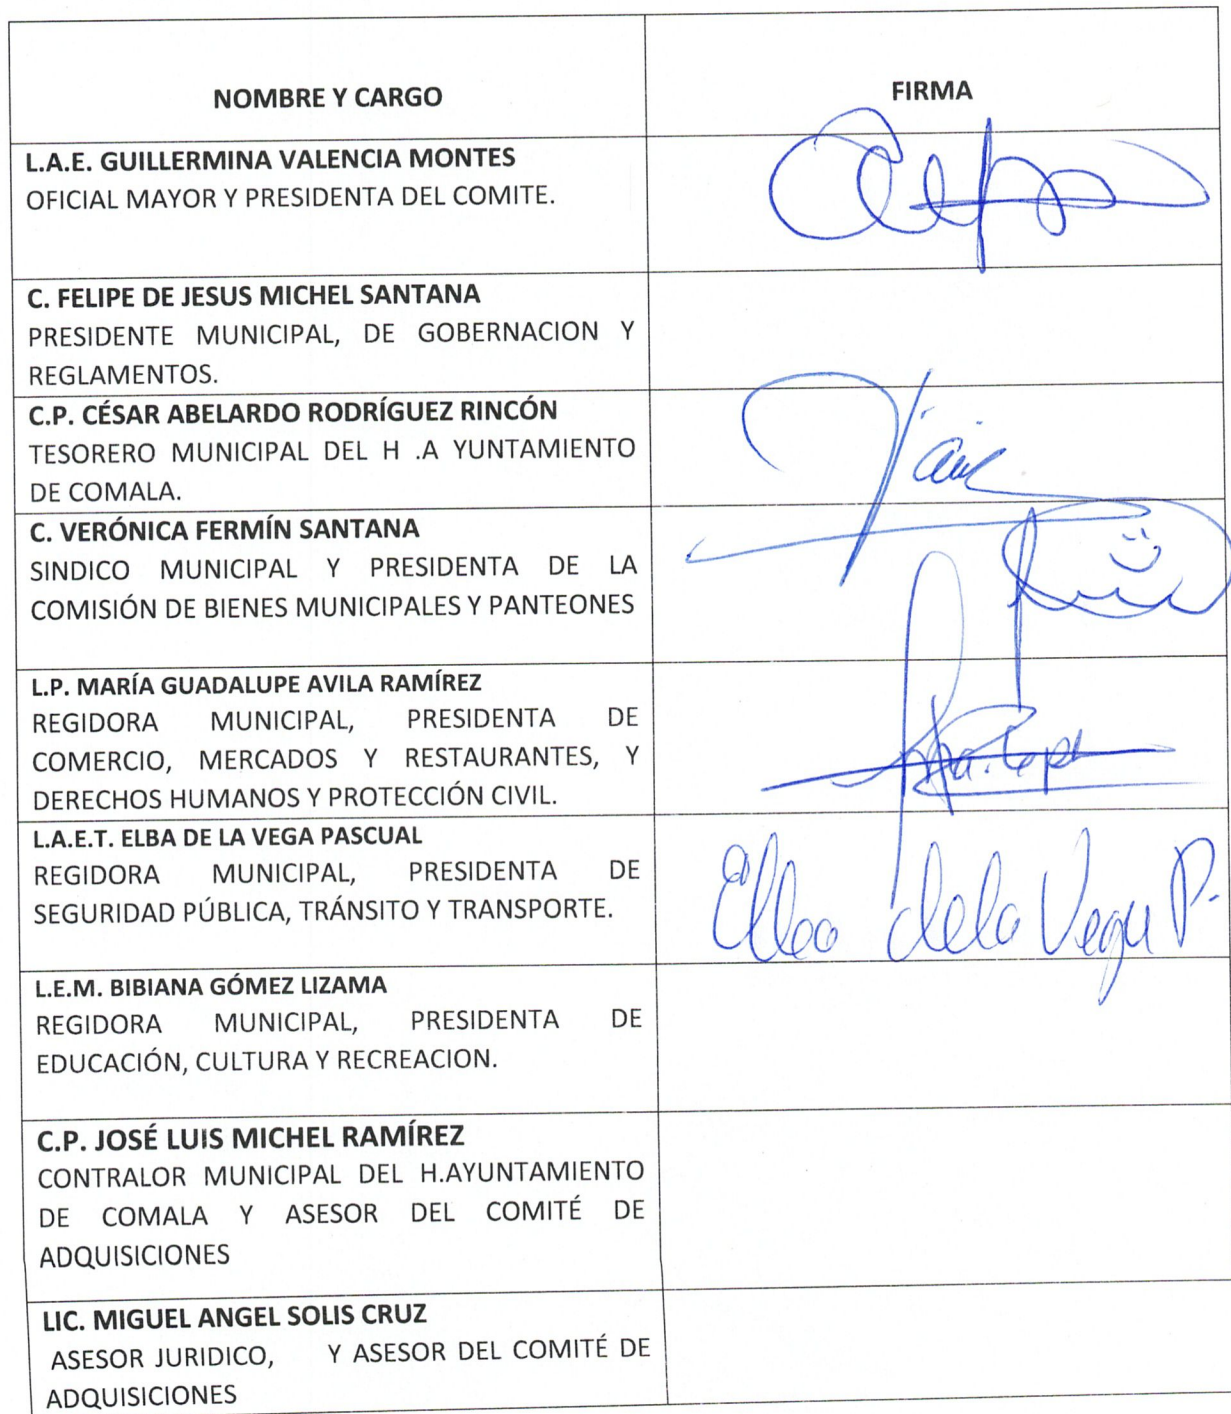 NOMBRE Y CARGO
FIRMA
L.A.E. GUILLERMINA VALENCIA MONTES
OFICIAL MAYOR Y PRESIDENTA DEL COMITE.
C. FELIPE DE JESUS MICHEL SANTANA
PRESIDENTE MUNICIPAL, DE GOBERNACION Y
REGLAMENTOS.
C.P. CÉSAR ABELARDO RODRÍGUEZ RINCÓN
TESORERO MUNICIPAL DEL H .A YUNTAMIENTO
DE COMALA.
C. VERÓNICA FERMÍN SANTANA
SINDICO MUNICIPAL Y PRESIDENTA DE LA
COMISIÓN DE BIENES MUNICIPALES Y PANTEONES
L.P. MARÍA GUADALUPE AVILA RAMÍREZ
REGIDORA MUNICIPAL, PRESIDENTA DE
COMERCIO, MERCADOS Y RESTAURANTES, Y
DERECHOS HUMANOS Y PROTECCIÓN CIVIL.
L.A.E.T. ELBA DE LA VEGA PASCUAL
REGIDORA MUNICIPAL, PRESIDENTA DE
SEGURIDAD PÚBLICA, TRÁNSITO Y TRANSPORTE.
Elba de la Vega P.
L.E.M. BIBIANA GÓMEZ LIZAMA
REGIDORA MUNICIPAL, PRESIDENTA DE
EDUCACIÓN, CULTURA Y RECREACION.
C.P. JOSÉ LUIS MICHEL RAMÍREZ
CONTRALOR MUNICIPAL DEL H.AYUNTAMIENTO
DE COMALA Y ASESOR DEL COMITÉ DE
ADQUISICIONES
LIC. MIGUEL ANGEL SOLIS CRUZ
ASESOR JURIDICO, Y ASESOR DEL COMITÉ DE
ADQUISICIONES